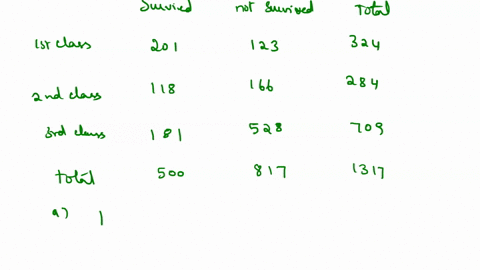 Survived not Survived Total
1st class 201 123 324
2nd class 118 166 284
3rd class 181 528 709
Total 500 817 1317
a) |